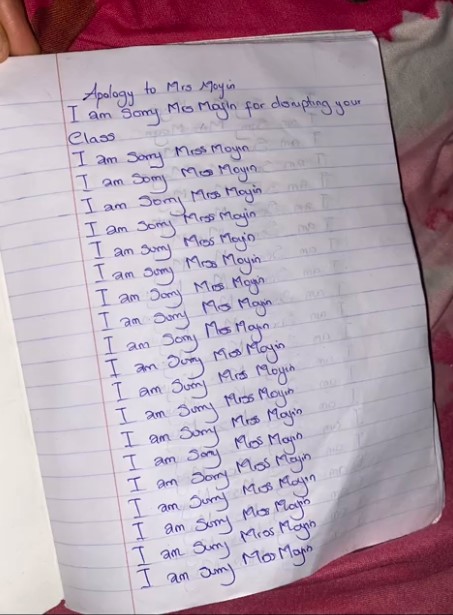 Apology to Mrs Moyin
I am Sorry Mrs Moyin for disrupting your
Class
I am Sorry Mrs Moyin
I am Sorry Mrs Moyin
I am Sorry Mrs Moyin
I am Sorry Mrs Moyin
I am Sorry Mrs Moyin
I am Sorry Mrs Moyin
I am Sorry Mrs Moyin
I am Sorry Mrs Moyin
I am Sorry Mrs Moyin
I am Sorry Mrs Moyin
I am Sorry Mrs Moyin
I am Sorry Mrs Moyin
I am Sorry Mrs Moyin
I am Sorry Mrs Moyin
I am Sorry Mrs Moyin
I am Sorry Mrs Moyin
I am Sorry Mrs Moyin
I am Sorry Mrs Moyin
I am Sorry Mrs Moyin